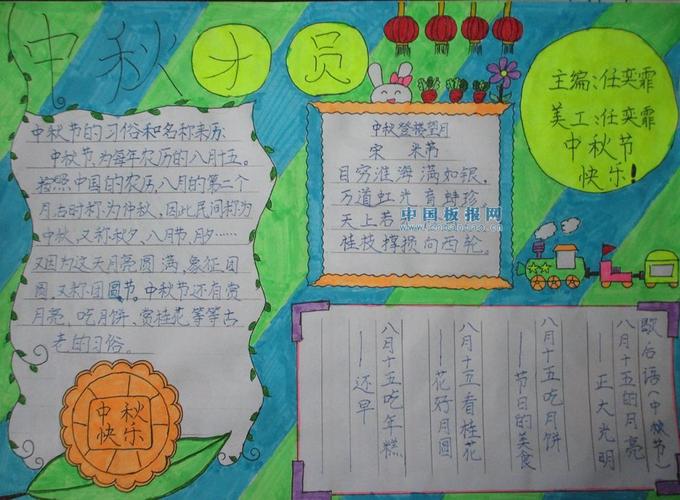 中秋才员
中秋节的习俗和名称来历:
中秋节,为每年农历的八月十五。
按照中国的农历,八月的第二个
月古时称为仲秋,因此民间称为
中秋,又称秋夕、八月节,月夕……
又因为这天月亮圆满,象征团
圆,又称团圆节。中秋节还有赏
月亮、吃月饼、赏桂花等等古
老的习俗。
中秋快乐
中秋登楼望月
宋 米芾
目穷淮海满如银,
万道虹光育蚌珍。
天上若
桂枝撑损向西轮。
中国板报网
主编:任奕霏
美工:任奕霏
中秋节
快乐!
歇后语(中秋节)
八月十五的月亮
——正大光明
八月十五吃月饼
——节日的美食
八月十五看桂花
——花好月圆
八月十五吃年糕
——还早